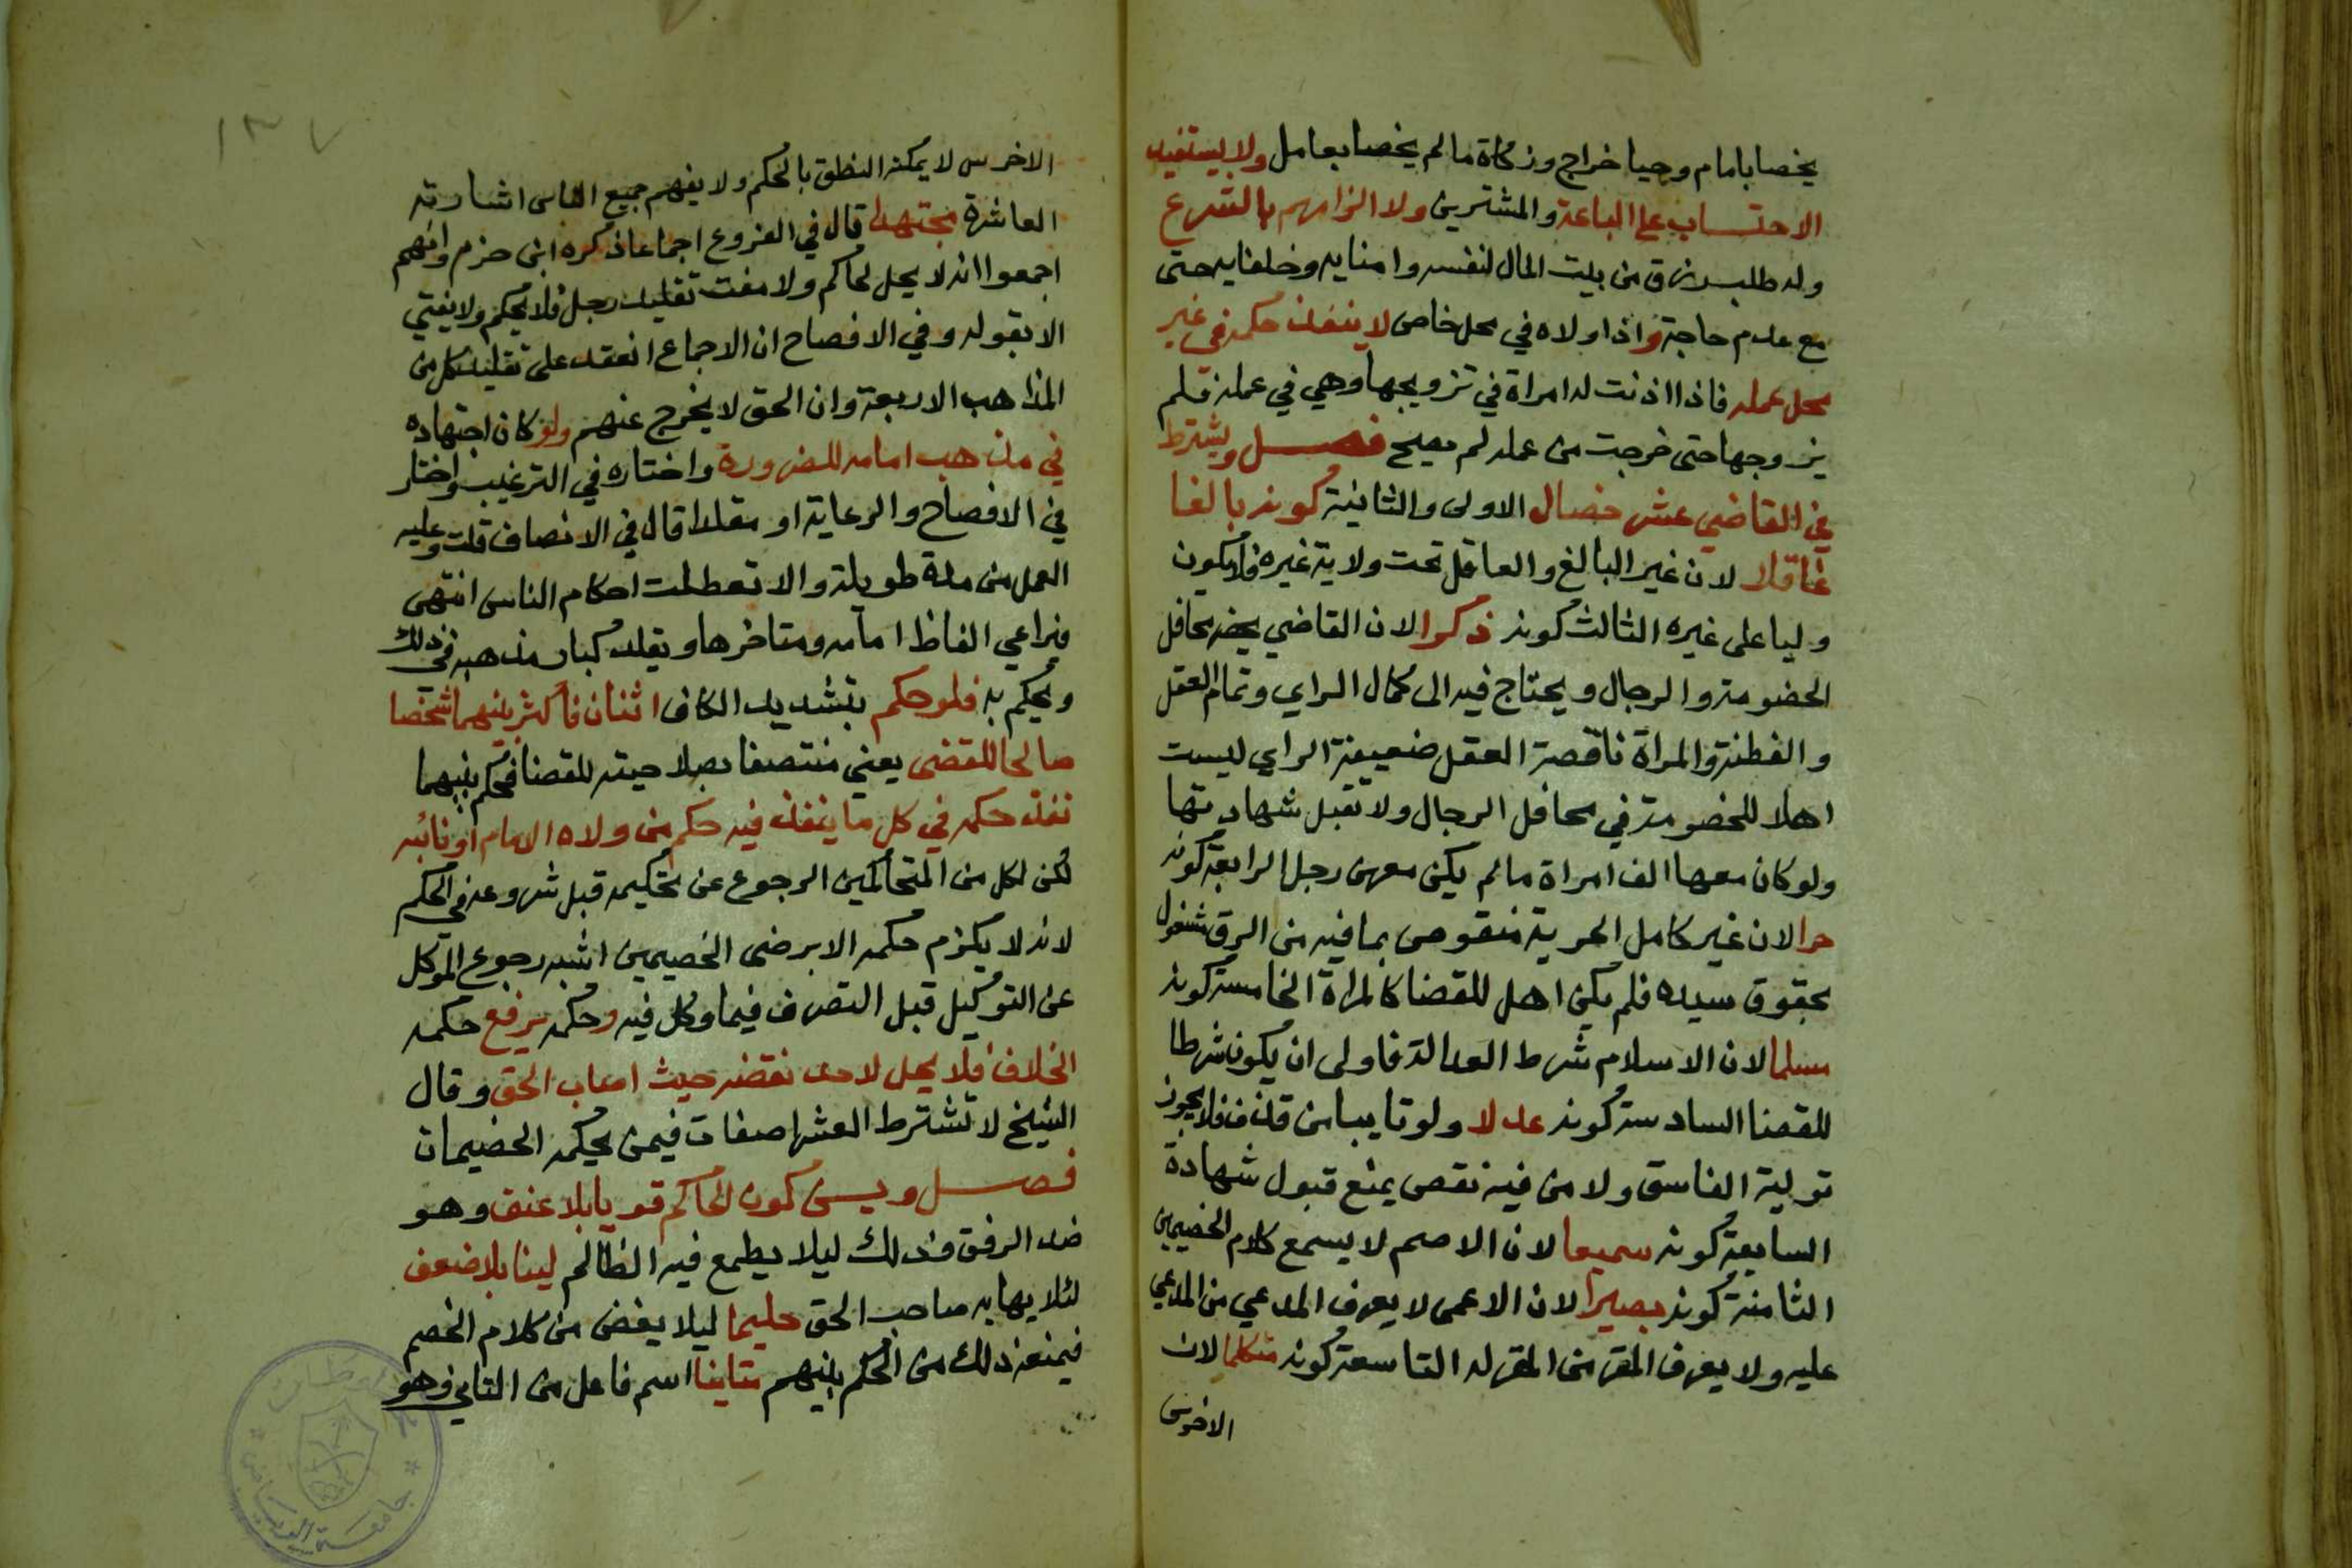 يخصا بامام وجيبا خراج وزكاة ما لم يخصا بعامل ولا يستفيد
الاحتساب على الباعة والمشترين ولا الزامهم بالشرع
وله طلب رزق من بيت المال لنفسه وامنايه وخلفايه حتى
مع عدم حاجة واذا ولاه في محل خاص لا ينفذ حكمه في غير
محل عمله فاذا اذنت له امراة في تزويجها وهي في عمله فلم
يزوجها حتى خرجت من عمله لم يصح فصل ويشترط
في القاضي عشر خصال الاولى والثانية كونه بالغا
عاقلا لان غير البالغ والعاقل تحت ولاية غيره فلا يكون
وليا على غيره الثالث كونه ذكرا لان القاضي يحضر محافل
الخصومة والرجال ويحتاج فيه الى كمال الراي وتمام العقل
والفطنة والمراة ناقصة العقل ضعيفة الراي ليست
اهلا للخصومة في محافل الرجال ولا تقبل شهادتها
ولو كان معها الف امراة ما لم يكن معهن رجل الرابعة كونه
حرا لان غير كامل الحرية منقوص بما فيه من الرق مشغول
بحقوق سيده فلم يكن اهل للقضا كالمراة الخامسة كونه
مسلما لان الاسلام شرط العدالة فاولى ان يكون شرطا
للقضا السادسة كونه عدلا ولو تايبا من قذف فلا يجوز
تولية الفاسق ولا من فيه نقص يمنع قبول شهادة
السابعة كونه سميعا لان الاصم لا يسمع كلام الخصمين
الثامنة كونه بصيرا لان الاعمى لا يعرف المدعي من المدعي
عليه ولا يعرف المقر من المقر له التاسعة كونه متكلما لان
الاخرس
١٣٧
الاخرس لا يمكنه النطق بالحكم ولا يفهم جميع الناس اشارته
العاشرة مجتهدا قال في الفروع اجماعا ذكره ابن حزم وانهم
اجمعوا انه لا يحل لحاكم ولا مفت تقليد رجل فلا يحكم ولا يفتي
الا بقوله وفي الافصاح ان الاجماع انعقد على تقليد كل من
المذاهب الاربعة وان الحق لا يخرج عنهم ولو كان اجتهاده
في مذهب امامه للضرورة واختاره في الترغيب واختار
في الافصاح والرعاية او مقلدا قال في الانصاف قلت وعليه
العمل من مدة طويلة والا تعطلت احكام الناس انتهى
فيراعي الفاظ امامه ومتاخرها ويقلد كبار مذهبه في ذلك
ويحكم به فلو حكم بتشديد الكاف اثنان فأكثر بينهما شخصا
صالحا للقضى يعني متصفا بصلاحيته للقضا فحكم بينهما
نفذ حكمه في كل ما ينفذ فيه حكم من ولاه الامام او نائبه
لكن لكل من المتحاكمين الرجوع عن تحكيمه قبل شروعه في الحكم
لانه لا يلزم حكمه الا برضى الخصمين اشبه رجوع الموكل
عن التوكيل قبل التصرف فيما وكل فيه وحكمه يرفع حكمه
الخلاف فلا يحل لاحد نقضه حيث اصاب الحق وقال
الشيخ لا تشترط العشر صفات فيمن يحكمه الخصمان
فصل ويسن كون الحاكم قويا بلا عنف وهو
ضد الرفق وذلك ليلا يطمع فيه الظالم لينا بلا ضعف
لئلا يهابه صاحب الحق حليما ليلا يغضب من كلام الخصم
فيمنعه ذلك من الحكم بينهم متانيا اسم فاعل من التاني وهو
جامعة الرياض